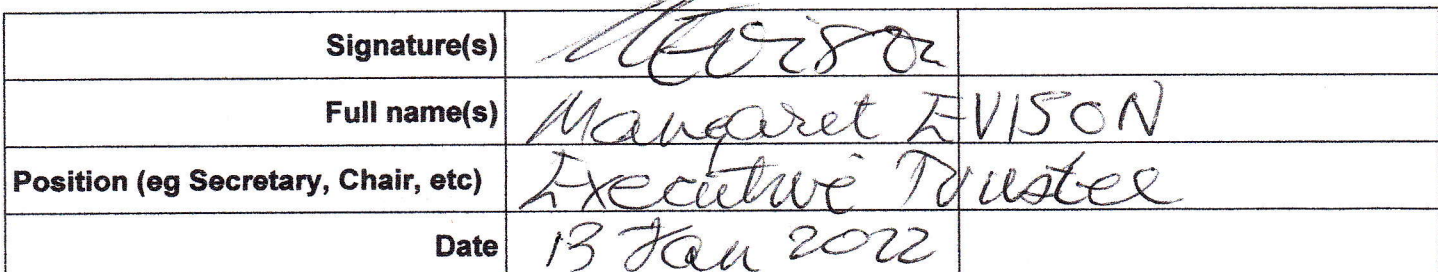 Signature(s) MEvison
Full name(s) Margaret EVISON
Position (eg Secretary, Chair, etc) Executive Trustee
Date 13 Jan 2022